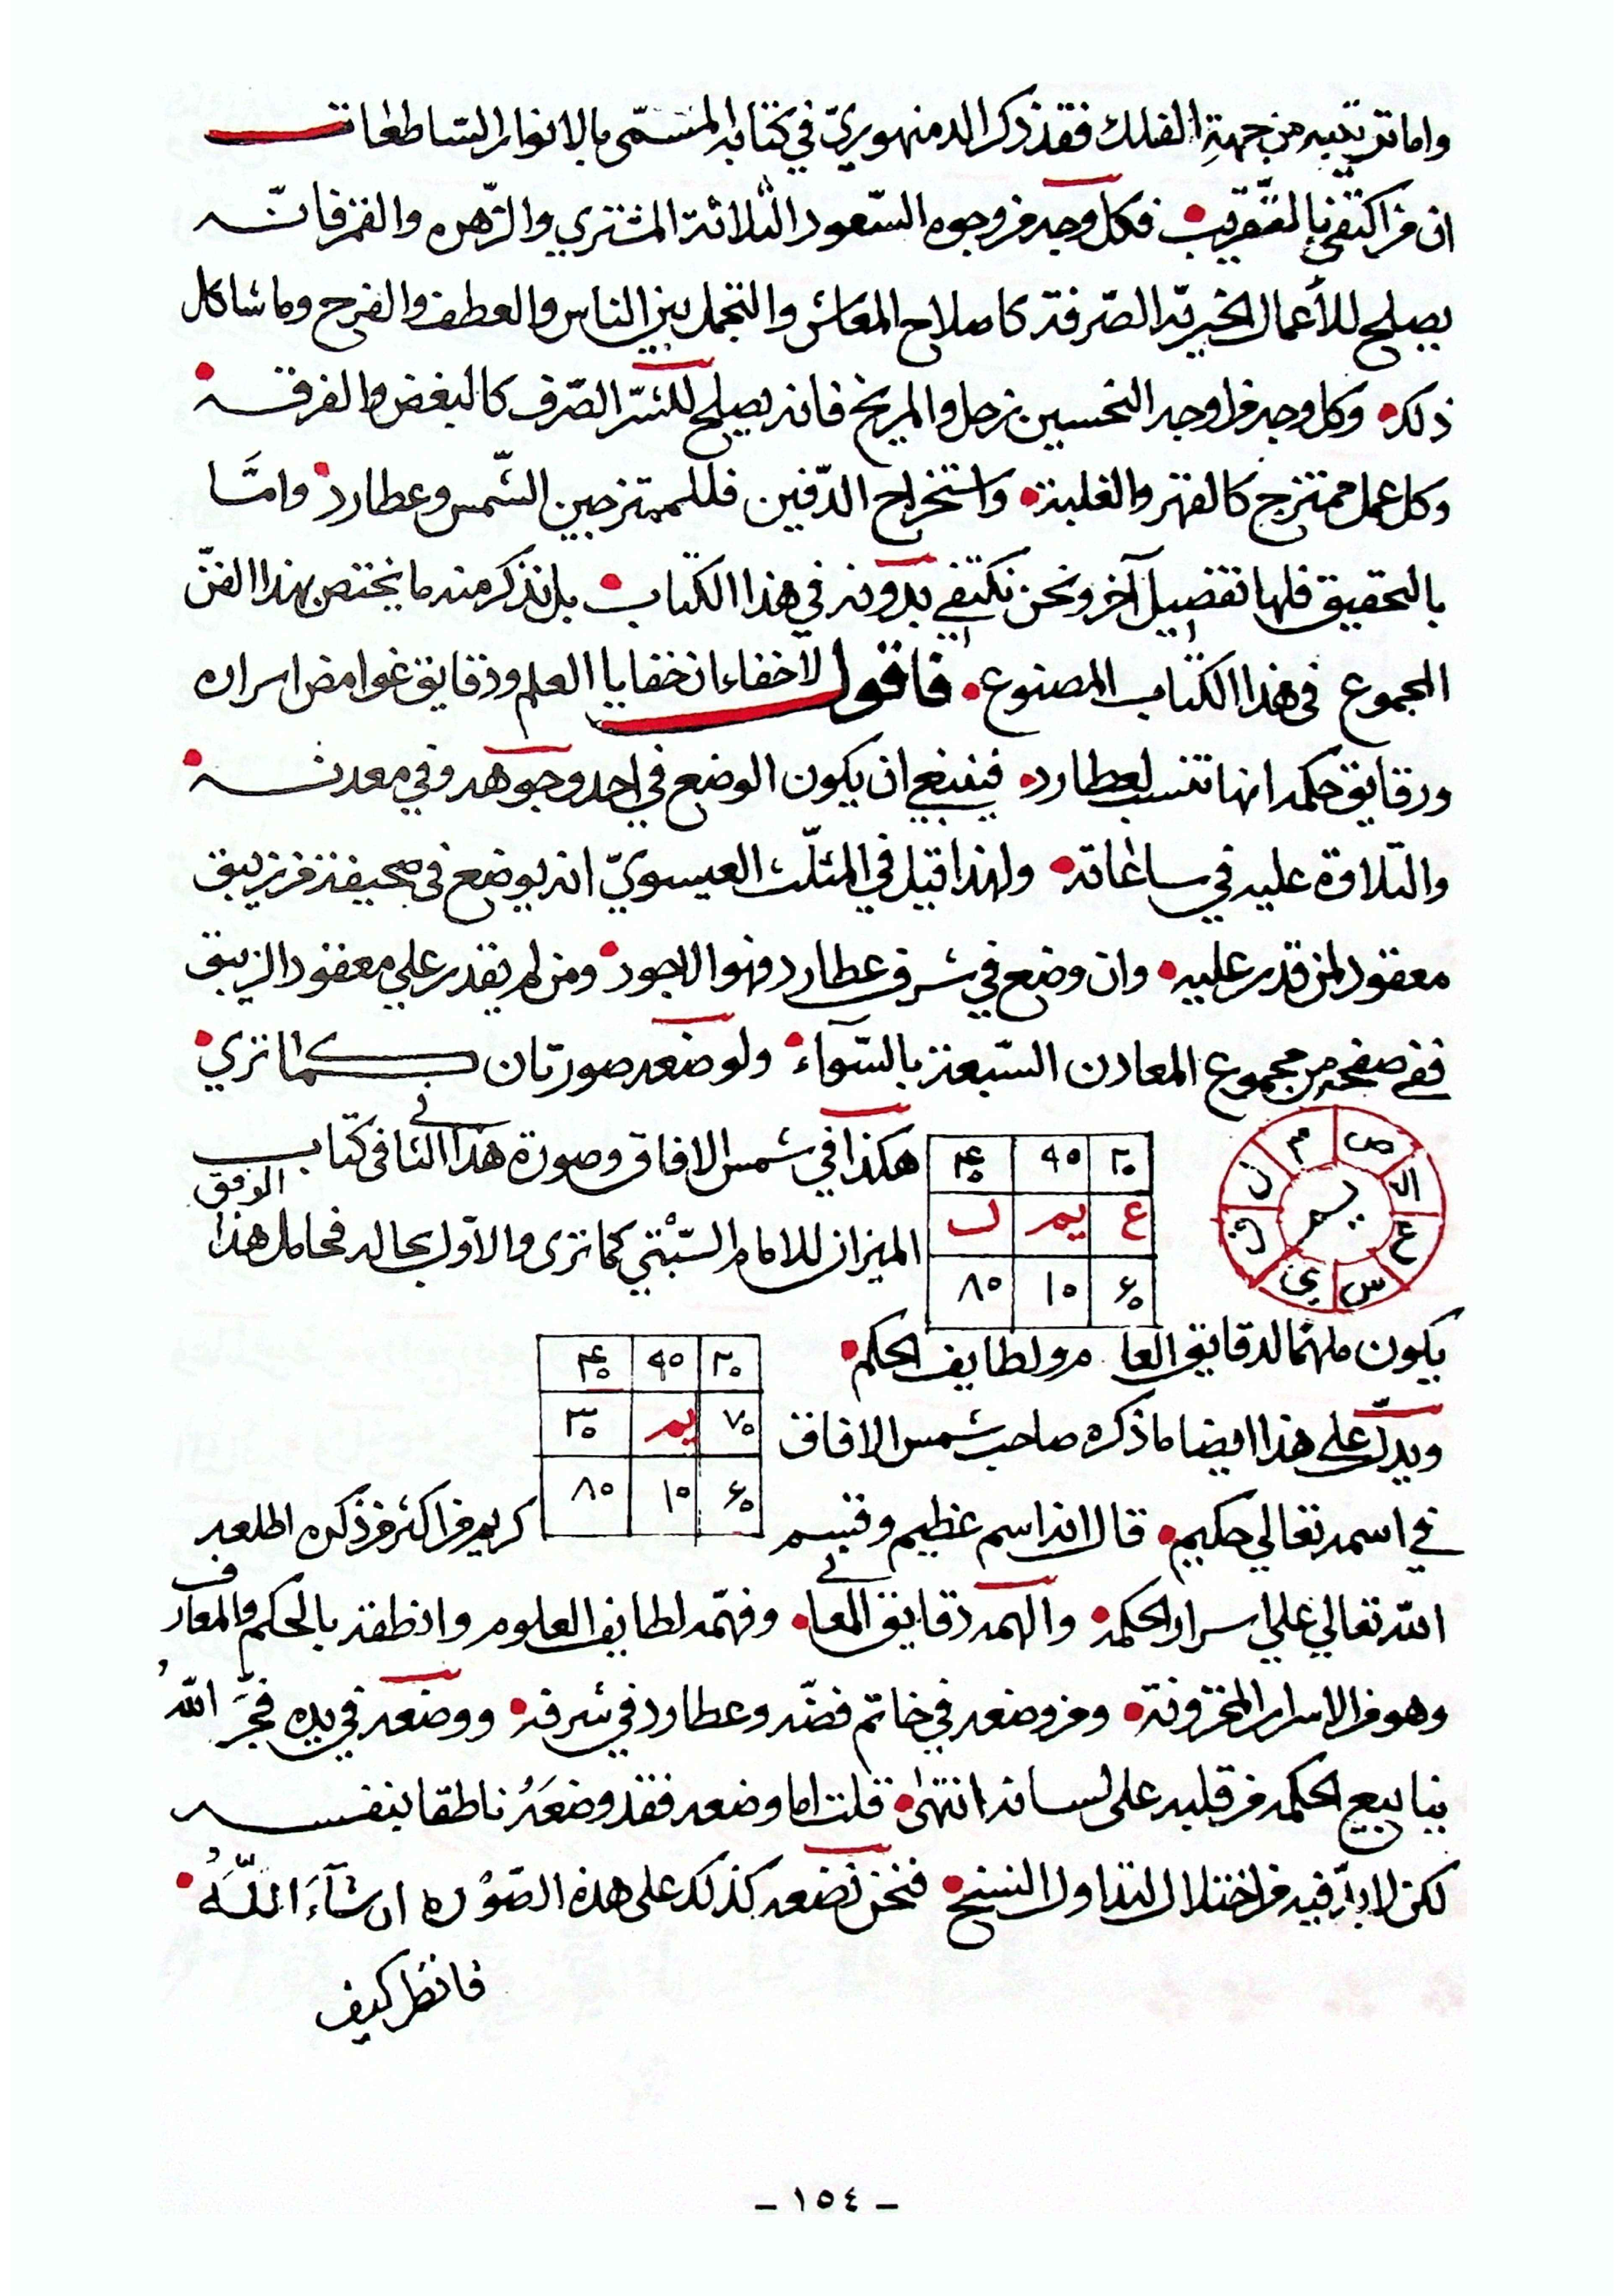 واما ترتيبه من جهةِ الفلك فقد ذكر الدمنهوريّ في كتابه المسمّى بالانوار السّاطعات
ان من اكتفى بالتقريب فكل وجه من وجوه السّعود الثّلاثة المشتري والزّهره والقمر فانّه
يصلح للأعمال الخيريّة الصّرفة كاصلاح المعاش والتجمل بين الناس والعطف والفرح وما شاكل
ذلك وكل وجه من اوجه النحسين زحل والمريخ فانه يصلح للشّر الصّرف كالبغض والفرقة
وكل عمل ممتزج كالقهر والغلبة واستخراج الدّفين فللممتزجين الشّمس وعطارد وامَّا
بالتحقيق فلها تفصيل آخر ونحن نكتفي بدونه في هذا الكتاب بل نذكر منه ما يختص بهذا الفنّ
المجموع في هذا الكتاب المصنوع فاقول لا خفاء ان خفايا العلم ودقايق غوامض اسراره
ورقايق حكمه انها تنسب لعطارد فينبغي ان يكون الوضع في احد وجوهه وفي معدنه
والتلاوة عليه في ساعاته ولهذا قيل في المثلّث العيسويّ انه يوضع في صحيفة من زيبق
معقود لمن قدر عليه وان وضع في شرف عطارد فهو الاجود ومن لم يقدر على معقود الزيبق
ففي صفحة من مجموع المعادن السّبعة بالسّوآء ولوضعه صورتان كما تري
هكذا في شمس الافاق وصورة هذا الثاني في كتاب
الوفق
الميزان للامام السّبْتي كما ترى والاوّل بحاله فحامل هذا
ص ال ع س ي ق ن م
٢٠ ٩٠ ۴٠
ع يم ل
۶٠ ١٠ ٨٠
يكون ملهمًا لدقايق العلوم ولطايف الحكم
٢٠ ٩٠ ۴٠
٧٠ يم ٣٠
۶٠ ١٠ ٨٠
ويدلّ على هذا ايضا ما ذكره صاحب شمس الافاق
في اسمه تعالي حكيم قال انه اسم عظيم وقسم كريم من اكثر من ذكره اطلعه
الله تعالي علي اسرار الحكمة والهمه دقايق المعاني وفهّمه لطايف العلوم وانطقه بالحكم والمعارف
وهو من الاسرار المخزونة ومن وضعه في خاتم فضّه وعطارد في شرفه ووضعه في يده فجَّرَ اللهُ
ينابيع الحكمه من قلبه على لسانه انتهٰى قلت اما وضعه فقد وضعَهُ ناطقا بنفسه
لكن لا بدّ فيه من اختلال التداول النسخ فنحن نضعه كذلك على هذه الصّوره ان شآءَ اللّهُ
فانظر كيف
- ١٥٤ -